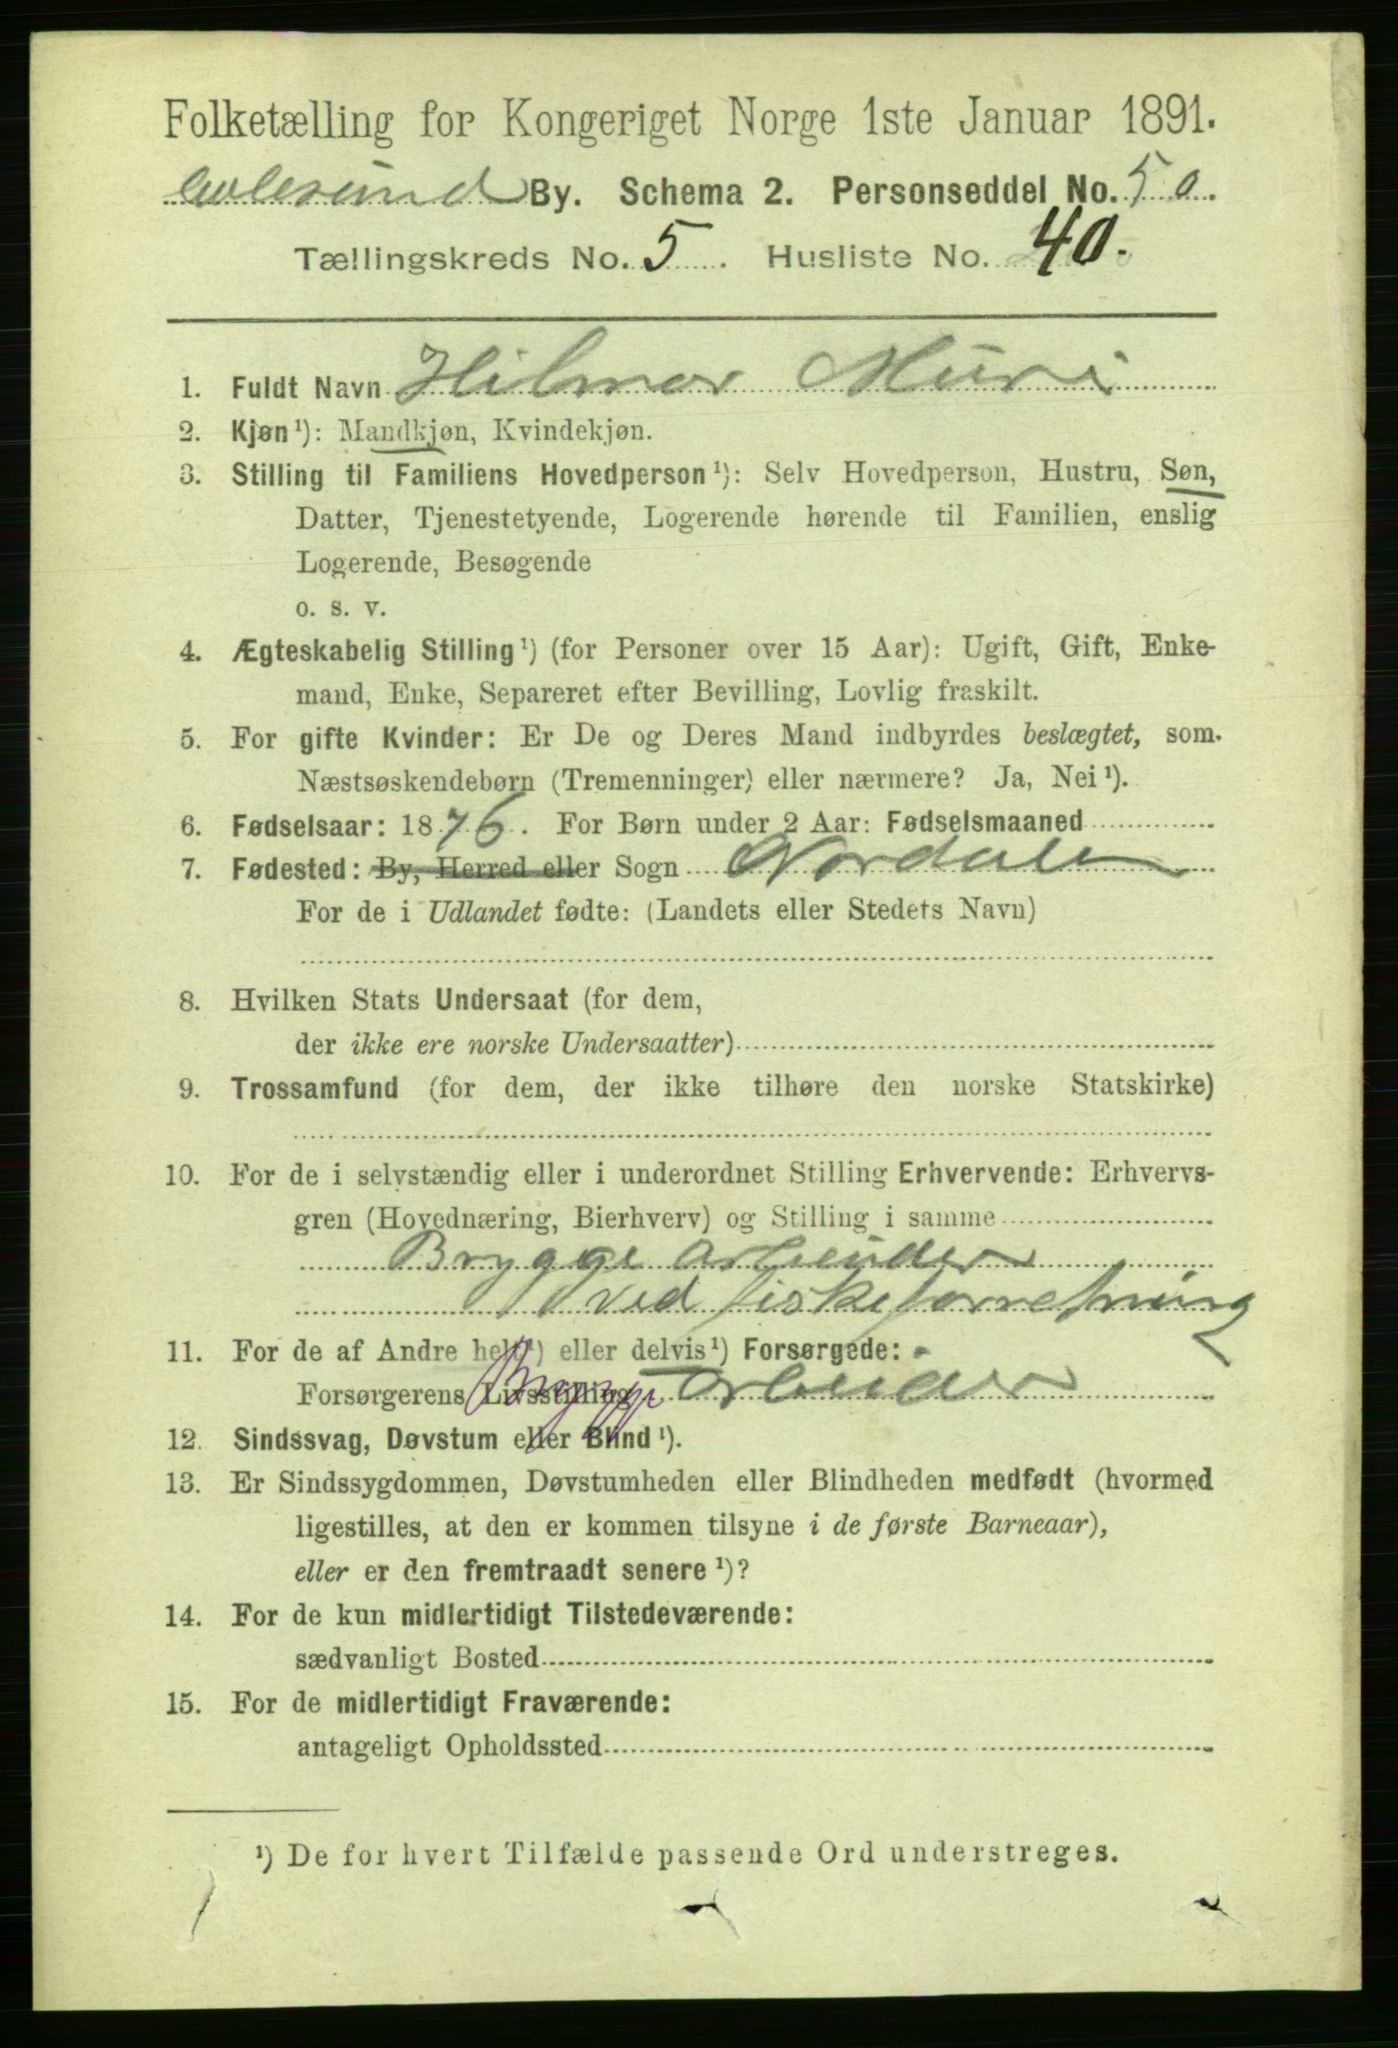 Folketælling for Kongeriget Norge 1ste Januar 1891.
Aalesund By. Schema 2. Personseddel No. 50.
Tællingskreds No. 5. Husliste No. 40.
1. Fuldt Navn Hilmar Muri
2. Kjøn¹): Mandkjøn, Kvindekjøn.
3. Stilling til Familiens Hovedperson¹): Selv Hovedperson, Hustru, Søn,
Datter, Tjenestetyende, Logerende hørende til Familien, enslig
Logerende, Besøgende
o. s. v.
4. Ægteskabelig Stilling¹) (for Personer over 15 Aar): Ugift, Gift, Enke-
mand, Enke, Separeret efter Bevilling, Lovlig fraskilt.
5. For gifte Kvinder: Er De og Deres Mand indbyrdes beslægtet, som
Næstsøskendebørn (Tremenninger) eller nærmere? Ja, Nei¹).
6. Fødselsaar: 1876. For Børn under 2 Aar: Fødselsmaaned
7. Fødested: By, Herred eller Sogn Nordalen
For de i Udlandet fødte: (Landets eller Stedets Navn)
8. Hvilken Stats Undersaat (for dem,
der ikke ere norske Undersaatter)
9. Trossamfund (for dem, der ikke tilhøre den norske Statskirke)
10. For de i selvstændig eller i underordnet Stilling Erhvervende: Erhvervs-
gren (Hovednæring, Bierhverv) og Stilling i samme
Brygge arbeider
ved fiskeforretning
11. For de af Andre helt¹) eller delvis¹) Forsørgede:
Forsørgerens Livsstilling Brygge arbeider
12. Sindssvag, Døvstum eller Blind¹).
13. Er Sindssygdommen, Døvstumheden eller Blindheden medfødt (hvormed
ligestilles, at den er kommen tilsyne i de første Barneaar),
eller er den fremtraadt senere¹)?
14. For de kun midlertidigt Tilstedeværende:
sædvanligt Bosted
15. For de midlertidigt Fraværende:
antageligt Opholdssted
¹) De for hvert Tilfælde passende Ord understreges.